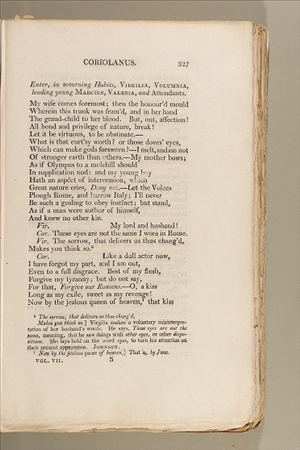 CORIOLANUS. 227
Enter, in mourning Habits, VIRGILIA, VOLUMNIA,
leading young MARCIUS, VALERIA, and Attendants.
My wife comes foremost; then the honour'd mould
Wherein this trunk was fram'd, and in her hand
The grand-child to her blood. But, out, affection!
All bond and privilege of nature, break!
Let it be virtuous, to be obstinate.—
What is that curt'sy worth? or those doves' eyes,
Which can make gods forsworn?—I melt, and am not
Of stronger earth than others.—My mother bows;
As if Olympus to a molehill should
In supplication nod: and my young boy
Hath an aspéct of intercession, which
Great nature cries, Deny not.—Let the Volces
Plough Rome, and harrow Italy; I'll never
Be such a gosling to obey instinct; but stand,
As if a man were author of himself,
And knew no other kin.
Vir. My lord and husband!
Cor. These eyes are not the same I wore in Rome.
Vir. The sorrow, that delivers us thus chang'd,
Makes you think so.⁸
Cor. Like a dull actor now,
I have forgot my part, and I am out,
Even to a full disgrace. Best of my flesh,
Forgive my tyranny; but do not say,
For that, Forgive our Romans.—O, a kiss
Long as my exile, sweet as my revenge!
Now by the jealous queen of heaven,⁹ that kiss
⁸ The sorrow, that delivers us thus chang'd,
Makes you think so.] Virgilia makes a voluntary misinterpre-
tation of her husband's words. He says, These eyes are not the
same, meaning, that he saw things with other eyes, or other dispo-
sitions. She lays hold on the word eyes, to turn his attention on
their present appearance. JOHNSON.
⁹ Now by the jealous queen of heaven,] That is, by Juno.
VOL. VII. S